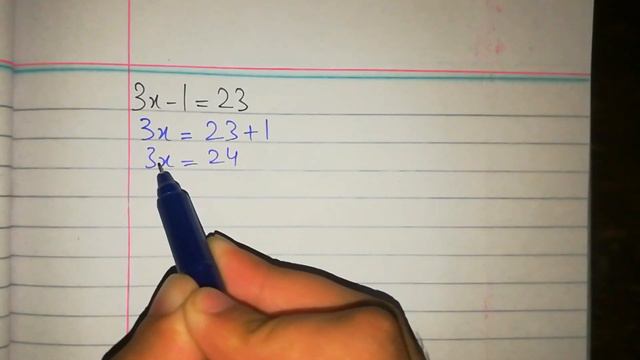 3x-1=23
3x = 23+1
3x = 24